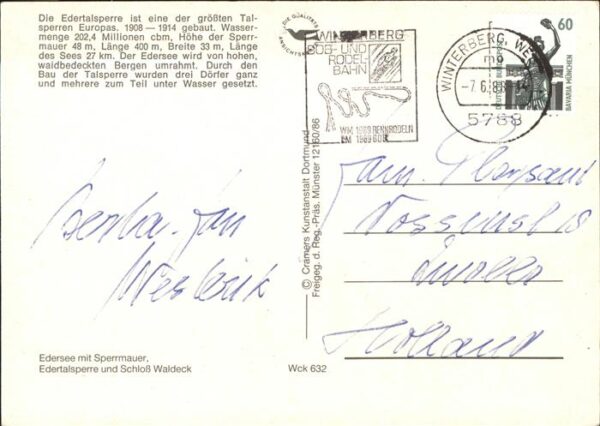 Die Edertalsperre ist eine der größten Tal-
sperren Europas. 1908 — 1914 gebaut. Wasser-
menge 202,4 Millionen cbm, Höhe der Sperr-
mauer 48 m, Länge 400 m, Breite 33 m, Länge
des Sees 27 km. Der Edersee wird von hohen,
waldbedeckten Bergen umrahmt. Durch den
Bau der Talsperre wurden drei Dörfer ganz
und mehrere zum Teil unter Wasser gesetzt.
DIE QUALITÄTS
WINTERBERG
BOB- UND
RODEL-
BAHN
WM 1989 RENNRODELN
WINTERBERG, WESTF
mo
-7.6.88-14
5788
60
DEUTSCHE BUNDESPOST
BAVARIA MÜNCHEN
Fam.
Holland
© Cramers Kunstanstalt Dortmund
Freigeg. d. Reg.-Präs. Münster 12160/86
Edersee mit Sperrmauer,
Edertalsperre und Schloß Waldeck
Wck 632